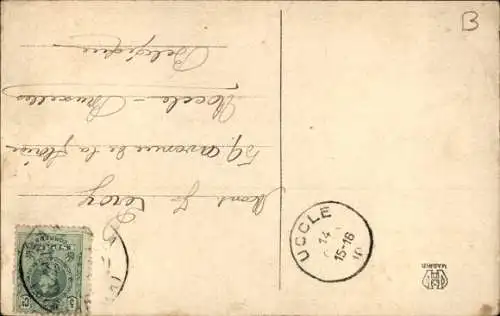 Mons. J. Leroy
59, avenue de la Floride
Uccle - Bruxelles
Belgique
UCCLE
14
15-16
MADRID
B